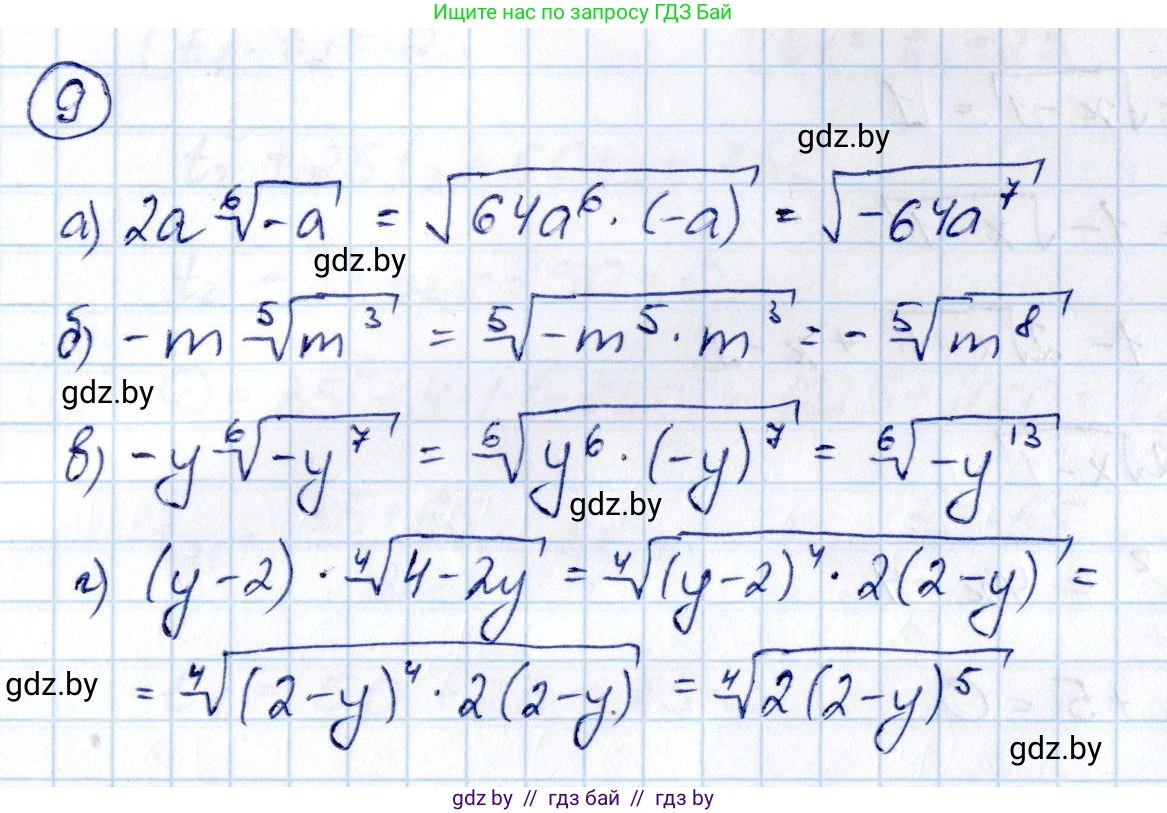 Ищите нас по запросу ГДЗ Бай
9
gdz.by
а) 2a ⁶√(-a) = √(64a⁶ · (-a)) = √(-64a⁷)
gdz.by
б) -m ⁵√(m³) = ⁵√(-m⁵ · m³) = - ⁵√(m⁸)
gdz.by
в) -y ⁶√(-y⁷) = ⁶√(y⁶ · (-y)⁷) = ⁶√(-y¹³)
gdz.by
г) (y-2) · ⁴√(4-2y) = ⁴√((y-2)⁴ · 2(2-y)) =
gdz.by = ⁴√((2-y)⁴ · 2(2-y)) = ⁴√(2(2-y)⁵)
gdz.by
gdz.by // гдз бай // гдз by